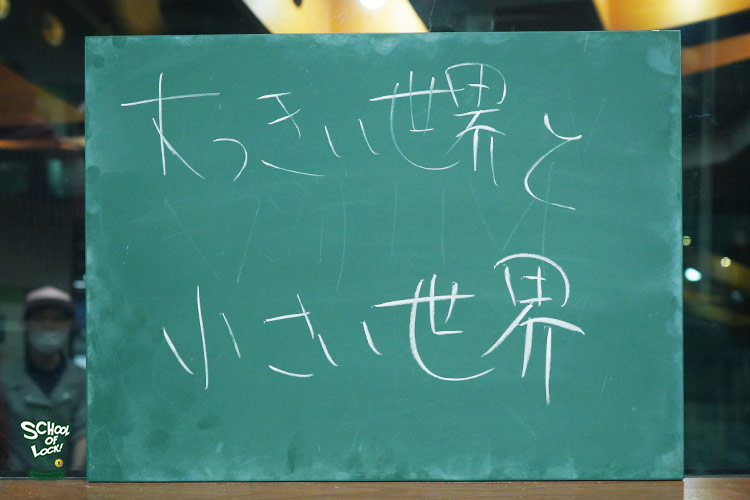 大っきい世界と
小さい世界
SCHOOL
OF
LOCK!